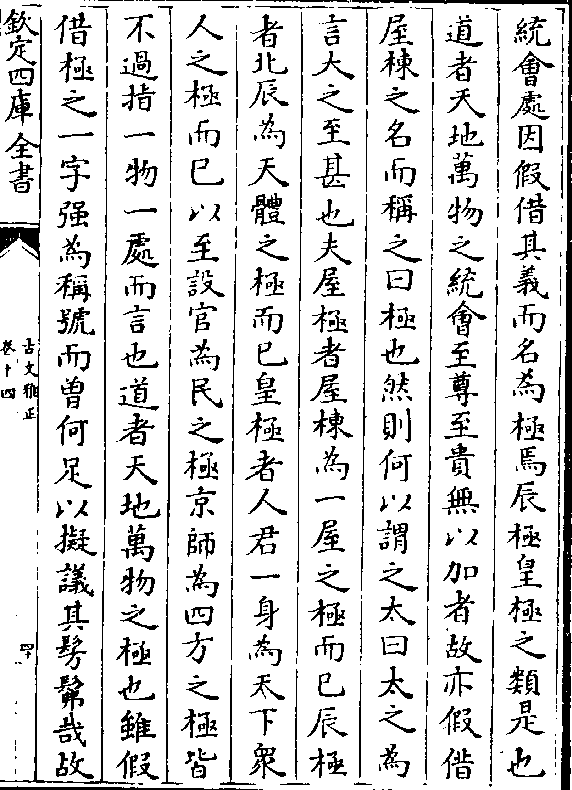 統會處因假借其義而名為極焉辰極皇極之類是也
道者天地萬物之統會至尊至貴無以加者故亦假借
屋棟之名而稱之曰極也然則何以謂之太曰太之為
言大之至甚也夫屋極者屋棟為一屋之極而已辰極
者北辰為天體之極而已皇極者人君一身為天下衆
人之極而已以至設官為民之極京師為四方之極皆
不過指一物一處而言也道者天地萬物之極也雖假
借極之一字强為稱號而曽何足以擬議其髣髴哉故
欽定四庫全書
古文雅正
卷十四